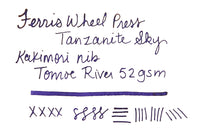 Ferris Wheel Press
Tanzanite Sky
Kakimori nib
Tomoe River 52gsm
XXXX